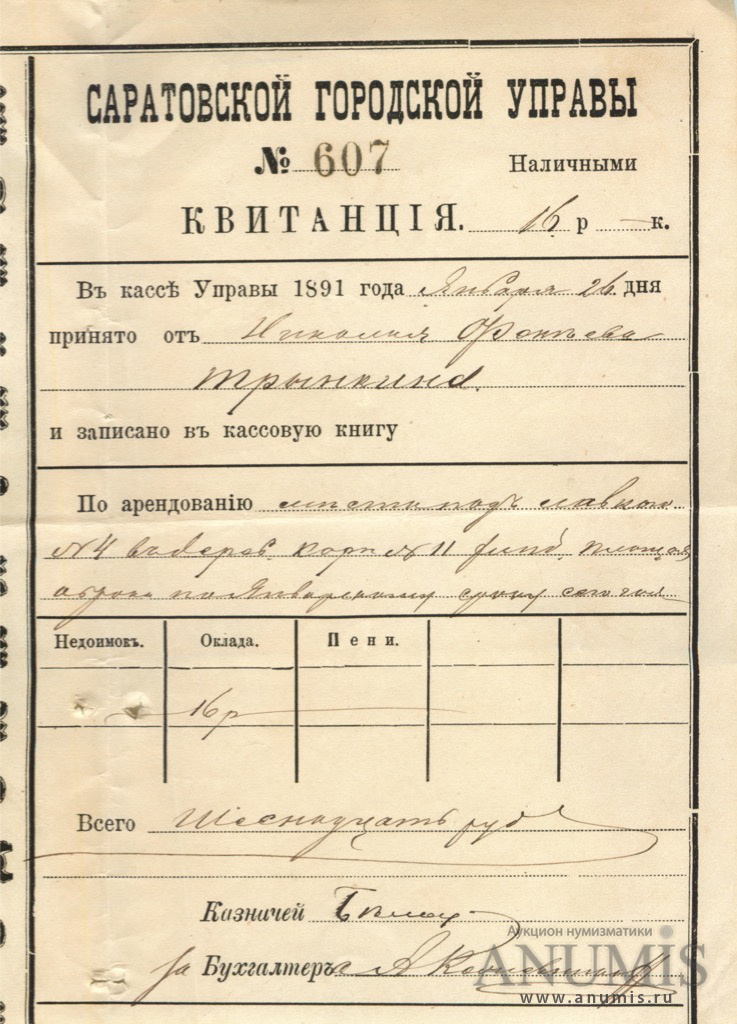 САРАТОВСКОЙ ГОРОДСКОЙ УПРАВЫ
№ 607 Наличными
КВИТАНЦІЯ. 16 р — к.
Въ кассѣ Управы 1891 года Января 26 дня
принято отъ Николая
Трынкина
и записано въ кассовую книгу
По арендованію места подъ лавкою
№ 4 корп № 11
по Январскому сроку сего года
Недоимокъ. Оклада. Пени.
16 р
Всего Шеснадцать руб
Казначей
за Бухгалтеръ
Аукцион нумизматики
ANUMIS
www.anumis.ru